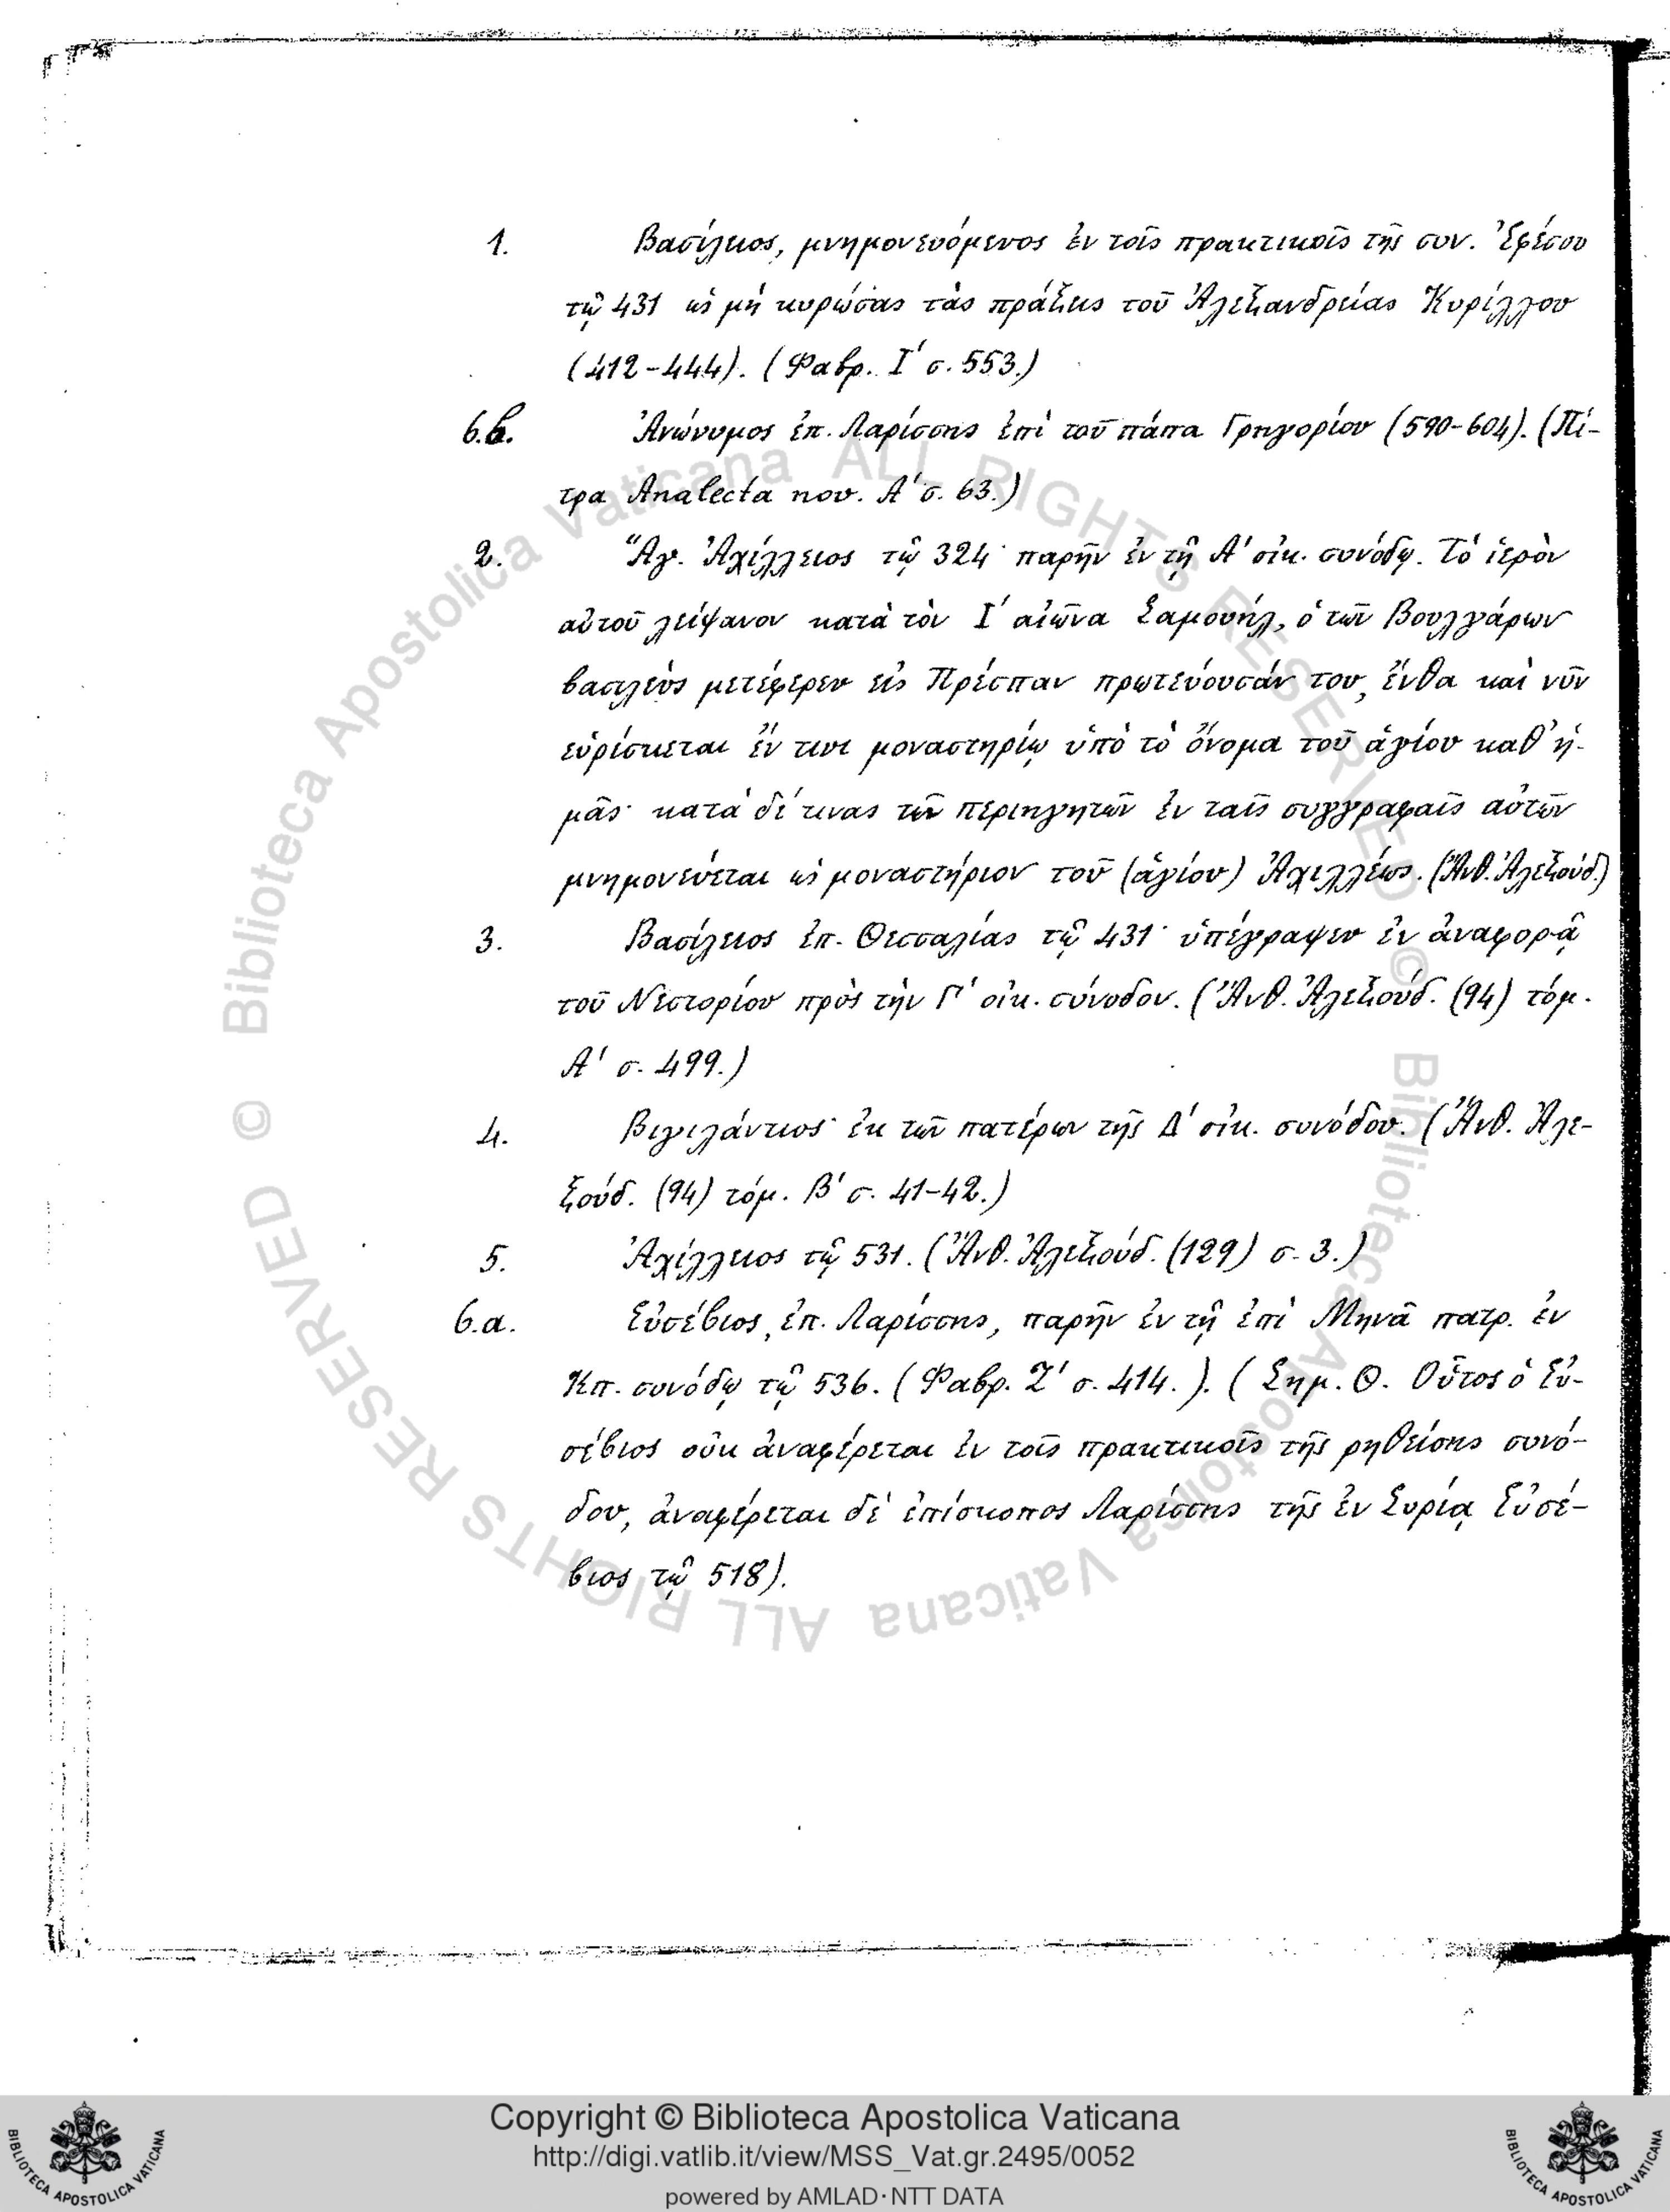 1. Βασίλειος, μνημονευόμενος ἐν τοῖς πρακτικοῖς τῆς συν. Ἐφέσου
τῷ 431 ὡς μὴ κυρώσας τὰς πράξεις τοῦ Ἀλεξανδρείας Κυρίλλου
(412-444). (Φαβρ. Ι΄ σ. 553.)
6.b. Ἀνώνυμος ἐπ. Λαρίσσης ἐπὶ τοῦ πάπα Γρηγορίου (590-604). (Πί-
τρα Analecta nov. Α΄ σ. 63.)
2. Ἅγ. Ἀχίλλειος τῷ 324· παρῆν ἐν τῇ Α΄ οἰκ. συνόδῳ. Τὸ ἱερὸν
αὐτοῦ λείψανον κατὰ τὸν Ι΄ αἰῶνα Σαμουήλ, ὁ τῶν Βουλγάρων
βασιλεὺς μετέφερεν εἰς Πρέσπαν πρωτεύουσάν του, ἔνθα καὶ νῦν
εὑρίσκεται ἔν τινι μοναστηρίῳ ὑπὸ τὸ ὄνομα τοῦ ἁγίου καθ' ἡ-
μᾶς· κατὰ δέ τινας τῶν περιηγητῶν ἐν ταῖς συγγραφαῖς αὐτῶν
μνημονεύεται ὡς μοναστήριον τοῦ (ἁγίου) Ἀχιλλέως. (Ἄνθ. Ἀλεξούδ.)
3. Βασίλειος ἐπ. Θεσσαλίας τῷ 431· ὑπέγραψεν ἐν ἀναφορᾷ
τοῦ Νεστορίου πρὸς τὴν Γ΄ οἰκ. σύνοδον. (Ἄνθ. Ἀλεξούδ. (94) τόμ.
Α΄ σ. 499.)
4. Βιγιλάντιος· ἐκ τῶν πατέρων τῆς Δ΄ οἰκ. συνόδου. (Ἄνθ. Ἀλε-
ξούδ. (94) τόμ. Β΄ σ. 41-42.)
5. Ἀχίλλειος τῷ 531. (Ἄνθ. Ἀλεξούδ. (129) σ. 3.)
6.a. Εὐσέβιος, ἐπ. Λαρίσσης, παρῆν ἐν τῇ ἐπὶ Μηνᾶ πατρ. ἐν
Κπ. συνόδῳ τῷ 536. (Φαβρ. Ζ΄ σ. 414.). (Σημ. Θ. Οὗτος ὁ Εὐ-
σέβιος οὐκ ἀναφέρεται ἐν τοῖς πρακτικοῖς τῆς ρηθείσης συνό-
δου, ἀναφέρεται δὲ ἐπίσκοπος Λαρίσσης τῆς ἐν Συρίᾳ Εὐσέ-
βιος τῷ 518).
© Biblioteca Apostolica Vaticana ALL RIGHTS RESERVED © Biblioteca Apostolica Vaticana ALL RIGHTS RESERVED
Copyright © Biblioteca Apostolica Vaticana
http://digi.vatlib.it/view/MSS_Vat.gr.2495/0052
powered by AMLAD·NTT DATA
BIBLIOTECA APOSTOLICA VATICANA
BIBLIOTECA APOSTOLICA VATICANA